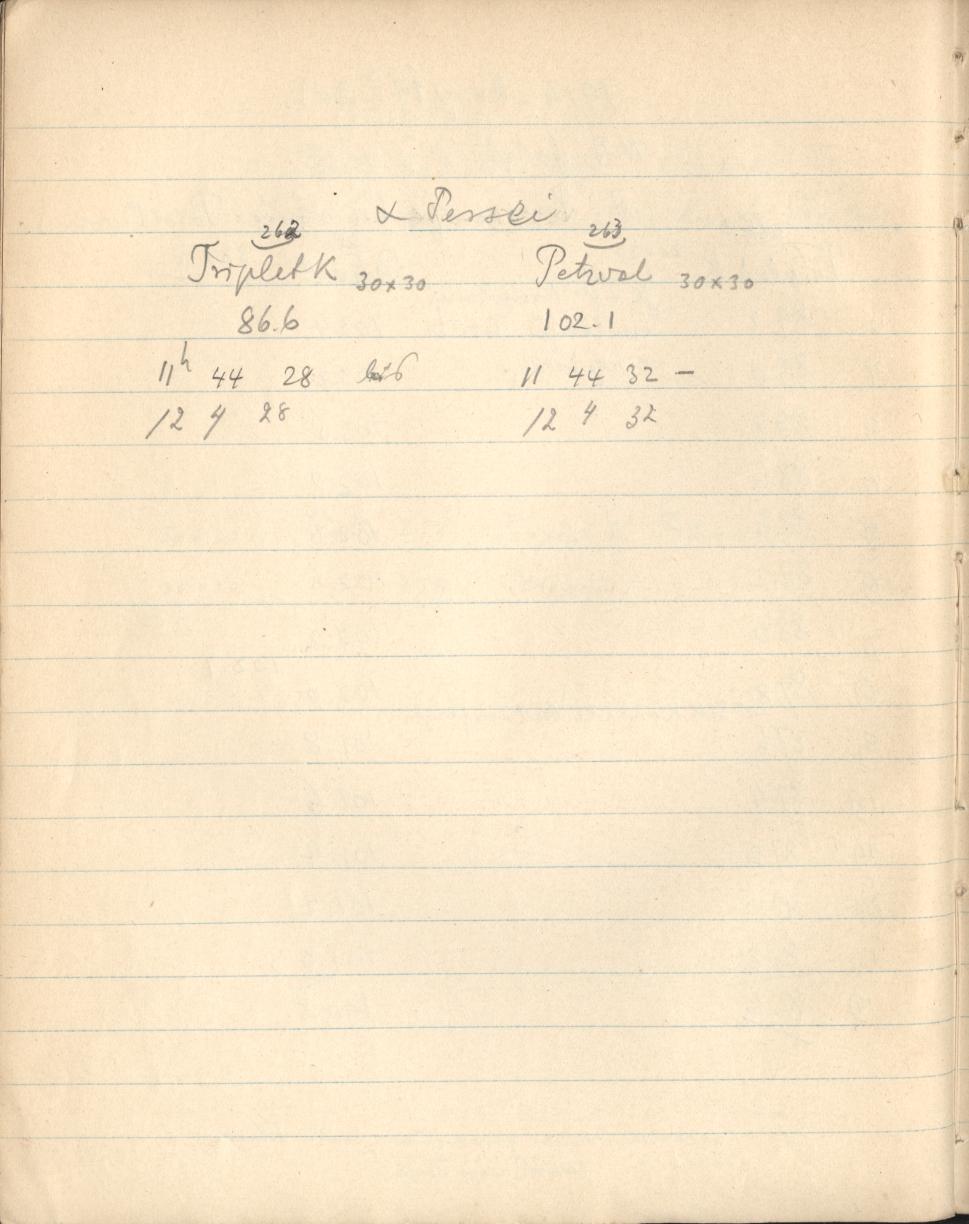 α Persei
262 263
Triplet K 30×30 Petzval 30×30
86.6 102.1
11h 44 28 bis 11 44 32 –
12 4 28 12 4 32